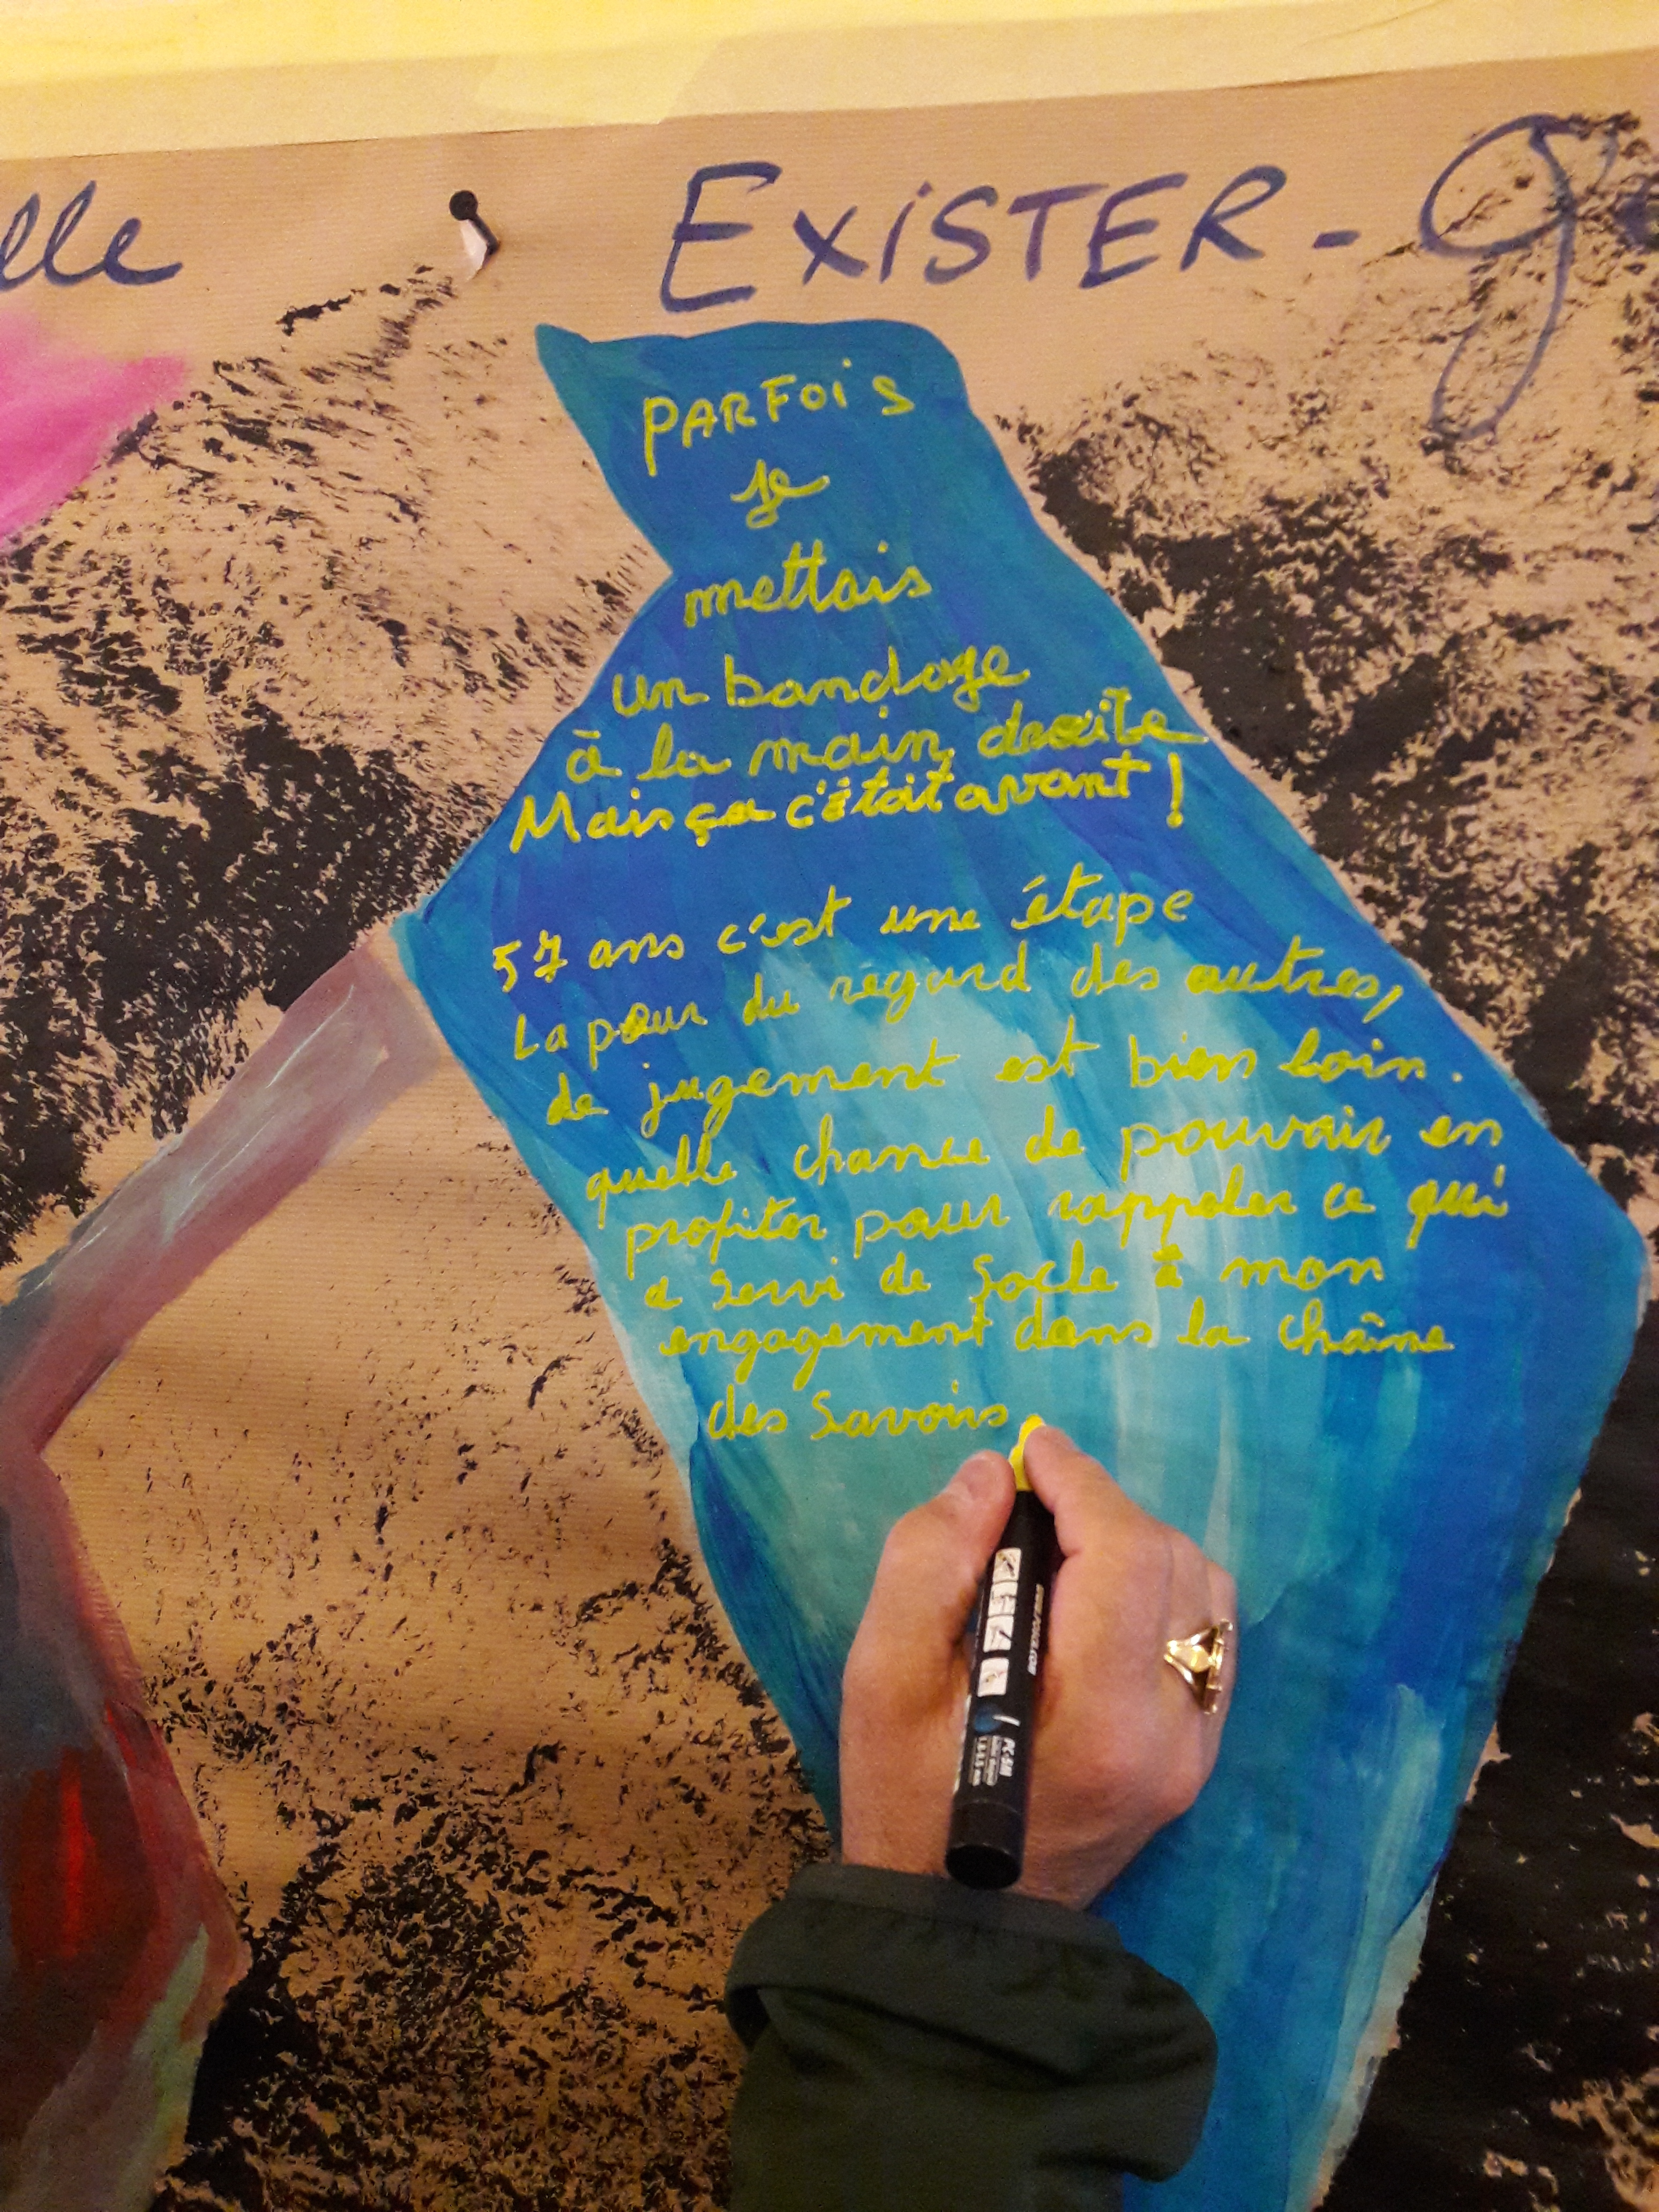 lle
EXiSTER - g
PARFOiS
je
mettais
un bandage
à la main droite
Mais ça c'était avant !
57 ans c'est une étape
La peur du regard des autres,
de jugement est bien loin.
quelle chance de pouvoir en
profiter pour rappeler ce qui
a servi de socle à mon
engagement dans la chaîne
des Savoirs
PC-5M